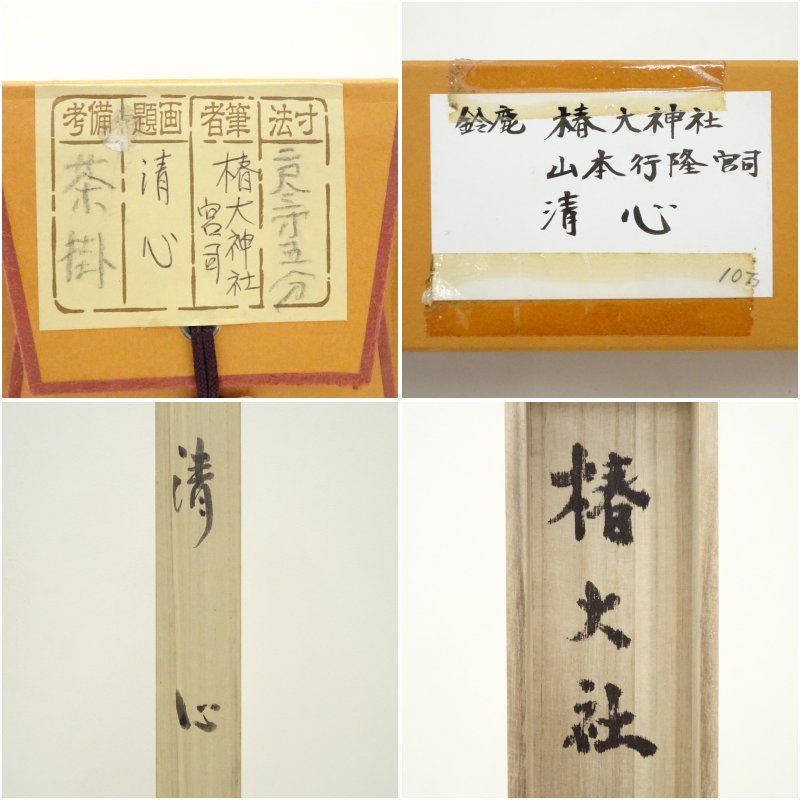 寸法
五分
筆者
椿大神社
宮司
画題
清心
備考
茶掛
鈴鹿 椿大神社
山本行隆宮司
清心
10万
清心
椿大社